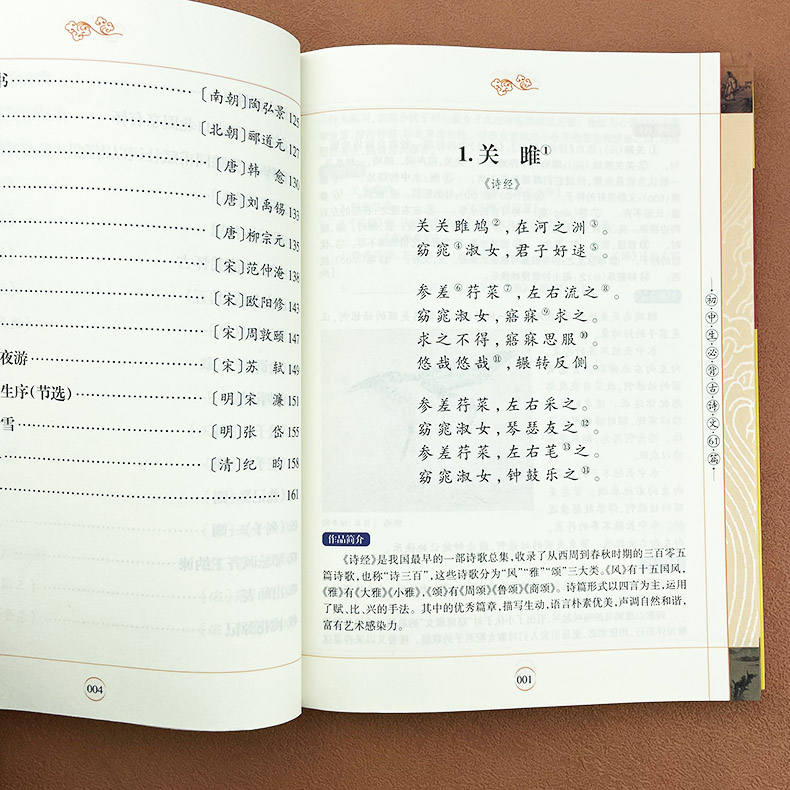 书……〔南朝〕陶弘景 125
……〔北朝〕郦道元 127
……〔唐〕韩 愈 130
……〔唐〕刘禹锡 133
……〔唐〕柳宗元 135
……〔宋〕范仲淹 138
……〔宋〕欧阳修 143
……〔宋〕周敦颐 147
夜游……〔宋〕苏 轼 149
生序(节选)……〔明〕宋 濂 151
雪……〔明〕张 岱 155
……〔清〕纪 昀 158
……161
004
1.关 雎①
《诗经》
关关雎鸠②,在河之洲③。
窈窕④淑女,君子好逑⑤。
参差⑥荇菜⑦,左右流之⑧。
窈窕淑女,寤寐⑨求之。
求之不得,寤寐思服⑩。
悠哉悠哉⑪,辗转反侧。
参差荇菜,左右采之。
窈窕淑女,琴瑟友之⑫。
参差荇菜,左右芼⑬之。
窈窕淑女,钟鼓乐之⑭。
作品简介
《诗经》是我国最早的一部诗歌总集,收录了从西周到春秋时期的三百零五
篇诗歌,也称“诗三百”,这些诗歌分为“风”“雅”“颂”三大类。《风》有十五国风,
《雅》有《大雅》《小雅》,《颂》有《周颂》《鲁颂》《商颂》。诗篇形式以四言为主,运用
了赋、比、兴的手法。其中的优秀篇章,描写生动,语言朴素优美,声调自然和谐,
富有艺术感染力。
001
初中生必背古诗文61篇